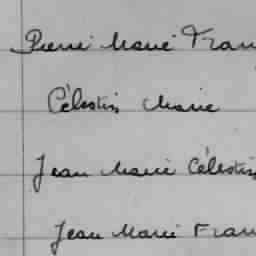 Pierre Marie Fran
Célestin Marie
Jean Marie Célestin
Jean Marie Fran